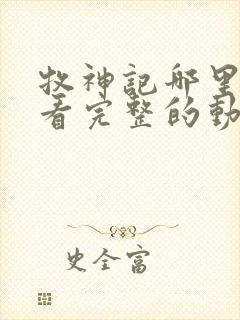 牧神记哪里
看完整的動
史全富